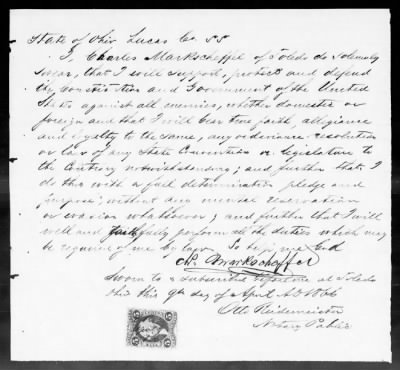 State of Ohio Lucas Co. SS
I, Charles Markscheffel of Toledo do solemnly
swear, that I will support, protect and defend
the Constitution and Government of the United
States against all enemies, whether domestic or
foreign and that I will bear true faith, allegiance
and loyalty to the same, any ordinance resolution
or law of any State Convention or legislature to
the contrary notwithstanding; and further that I
do this with a full determination pledge and
purpose, without any mental reservation
or evasion whatsoever; and further that I will
well and faithfully perform all the duties which may
be required of me by law. So help me God
Ch. Markscheffel
Sworn to & subscribed before me at Toledo
Ohio this 9th day of April A.D. 1866
Otto Reidemeister
Notary Public